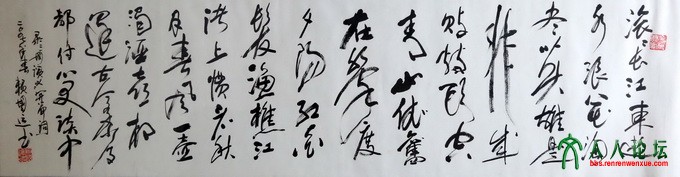 滚滚长江东逝
水浪花淘
尽英雄是
非成
败转头空
青山依旧
在几度
夕阳红白
发渔樵江
渚上惯看秋
月春风一壶
浊酒喜相
逢古今多少
都付笑谈中
录三国演义开篇词
人人论坛
bbs.renrenwenxue.com